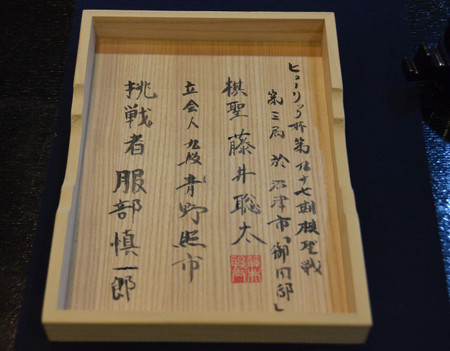 ヒューリック杯第九十七期棋聖戦
第三局 於 沼津市「御用邸」
棋聖 藤井聡太
立会人 九段 青野照市
挑戦者 服部慎一郎